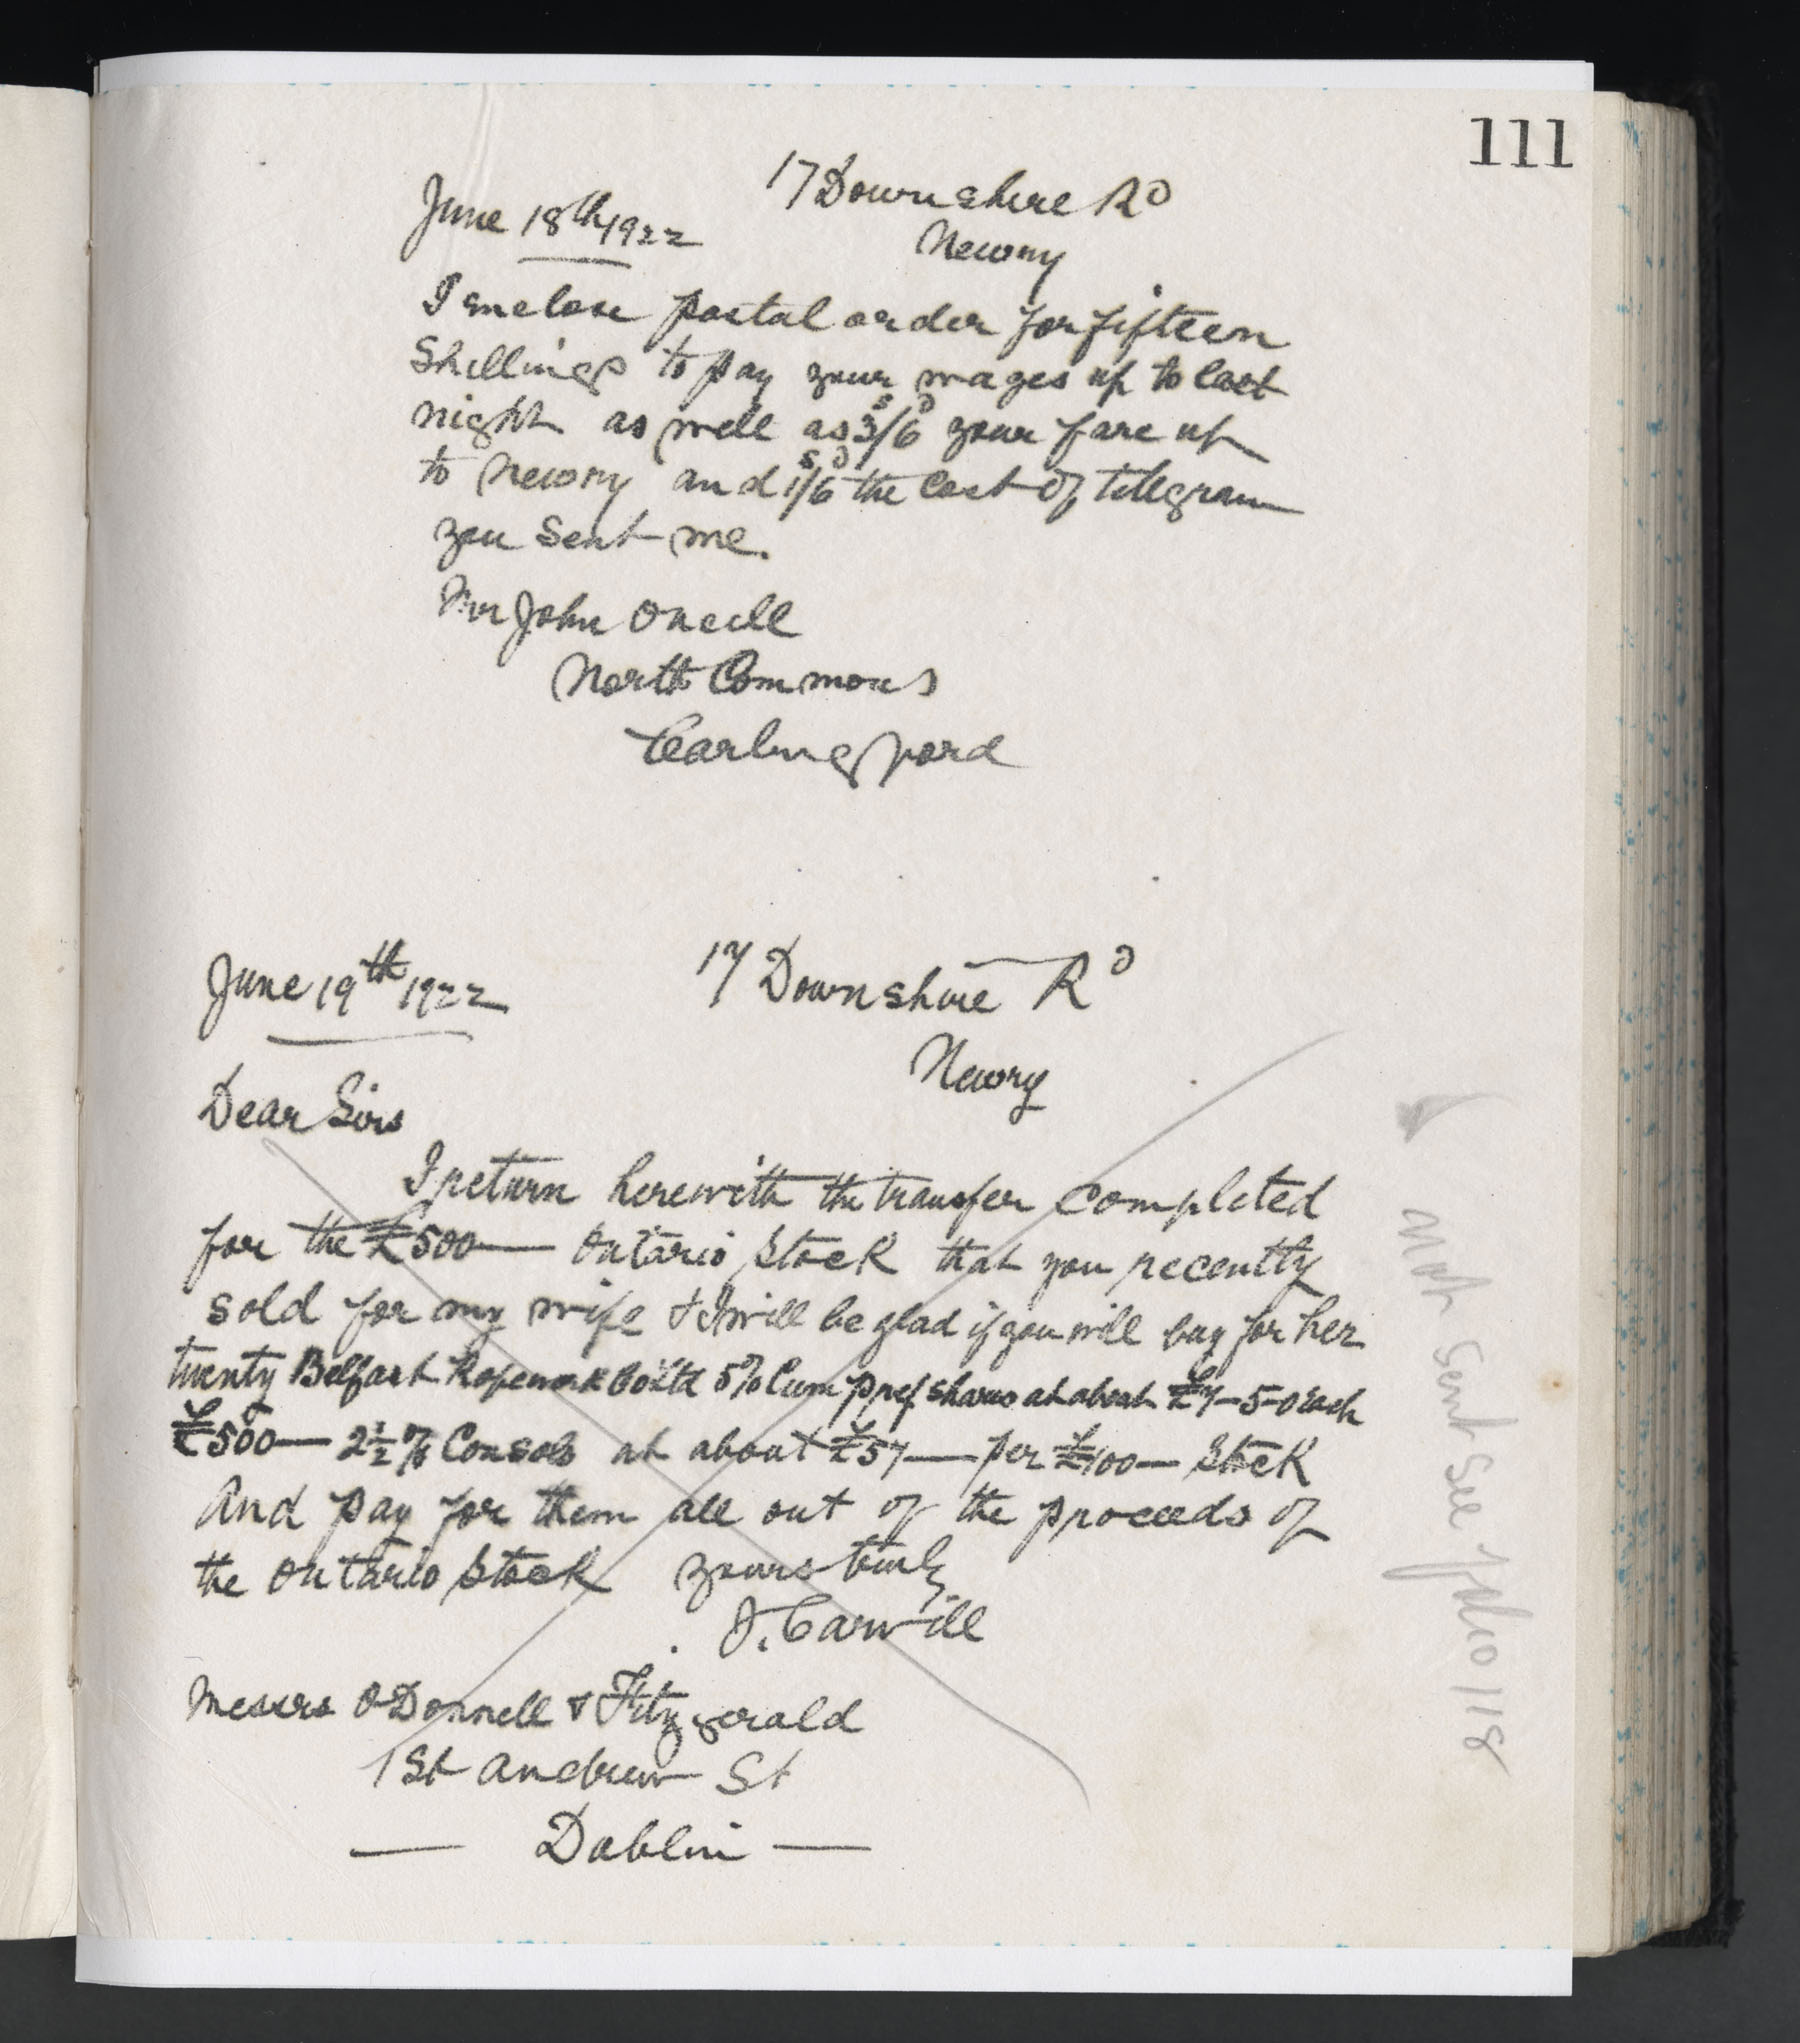 111
17 Downshire Rd
June 18th 1922
Newry
I enclose postal order for fifteen
Shillings to pay your wages up to last
night as well as 3s/6d your fare up
to Newry and 1s/6d the cost of telegram
you sent me.
Mr John ONeill
North Commons
Carlingford
17 Downshire Rd
June 19th 1922
Newry
Dear Sirs
I return herewith the transfer completed
for the £500— Ontario Stock that you recently
sold for my wife & I will be glad if you will buy for her
twenty Belfast Ropework Co Ltd 5% Cum pref shares at about £7-5-0 each
£500— 2½ % Consols at about £57— per £100— Stock
And pay for them all out of the proceeds of
the Ontario Stock yours truly
J. Carvill
Messrs ODonnell & Fitzgerald
1 St Andrew St
— Dublin —
Not sent See folio 118